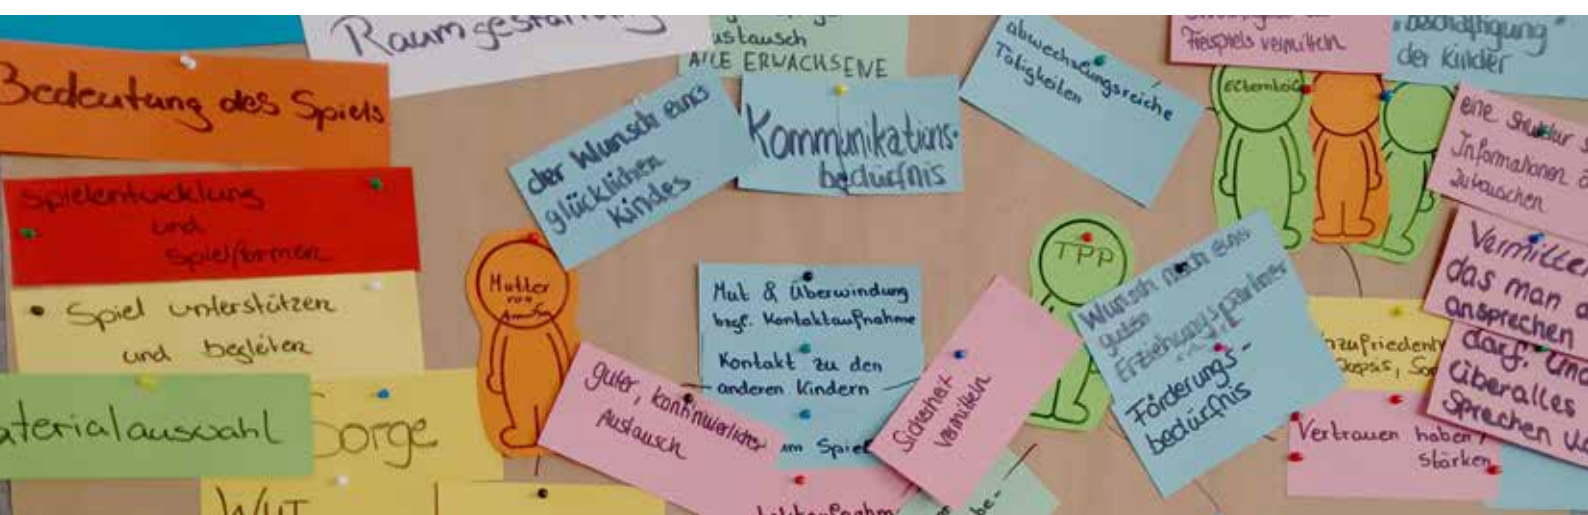 Raumgestaltung
Bedeutung des Spiels
Spielentwicklung
und
Spielformen
• Spiel unterstützen
und begleiten
aterialauswahl
Sorge
Wut
ustausch
ALLE ERWACHSENE
der Wunsch eines
glücklichen
Kindes
Kommunikations-
bedürfnis
abwechslungsreiche
Tätigkeiten
Freispiels vermitteln
der Kinder
eine Struktur
Informationen
zutauschen
Mutter
von
TPP
Mut & Überwindung
bzgl. Kontaktaufnahme
Kontakt zu den
anderen Kindern
im Spiel
guter, kontinuierlicher
Austausch
Sicherheit
vermitteln
Wunsch nach eines
guten
Erziehungspartner
Förderungs-
bedürfnis
be-
Vermitteln
das man
ansprechen
darf. Und
überalles
sprechen
Vertrauen haben /
stärken